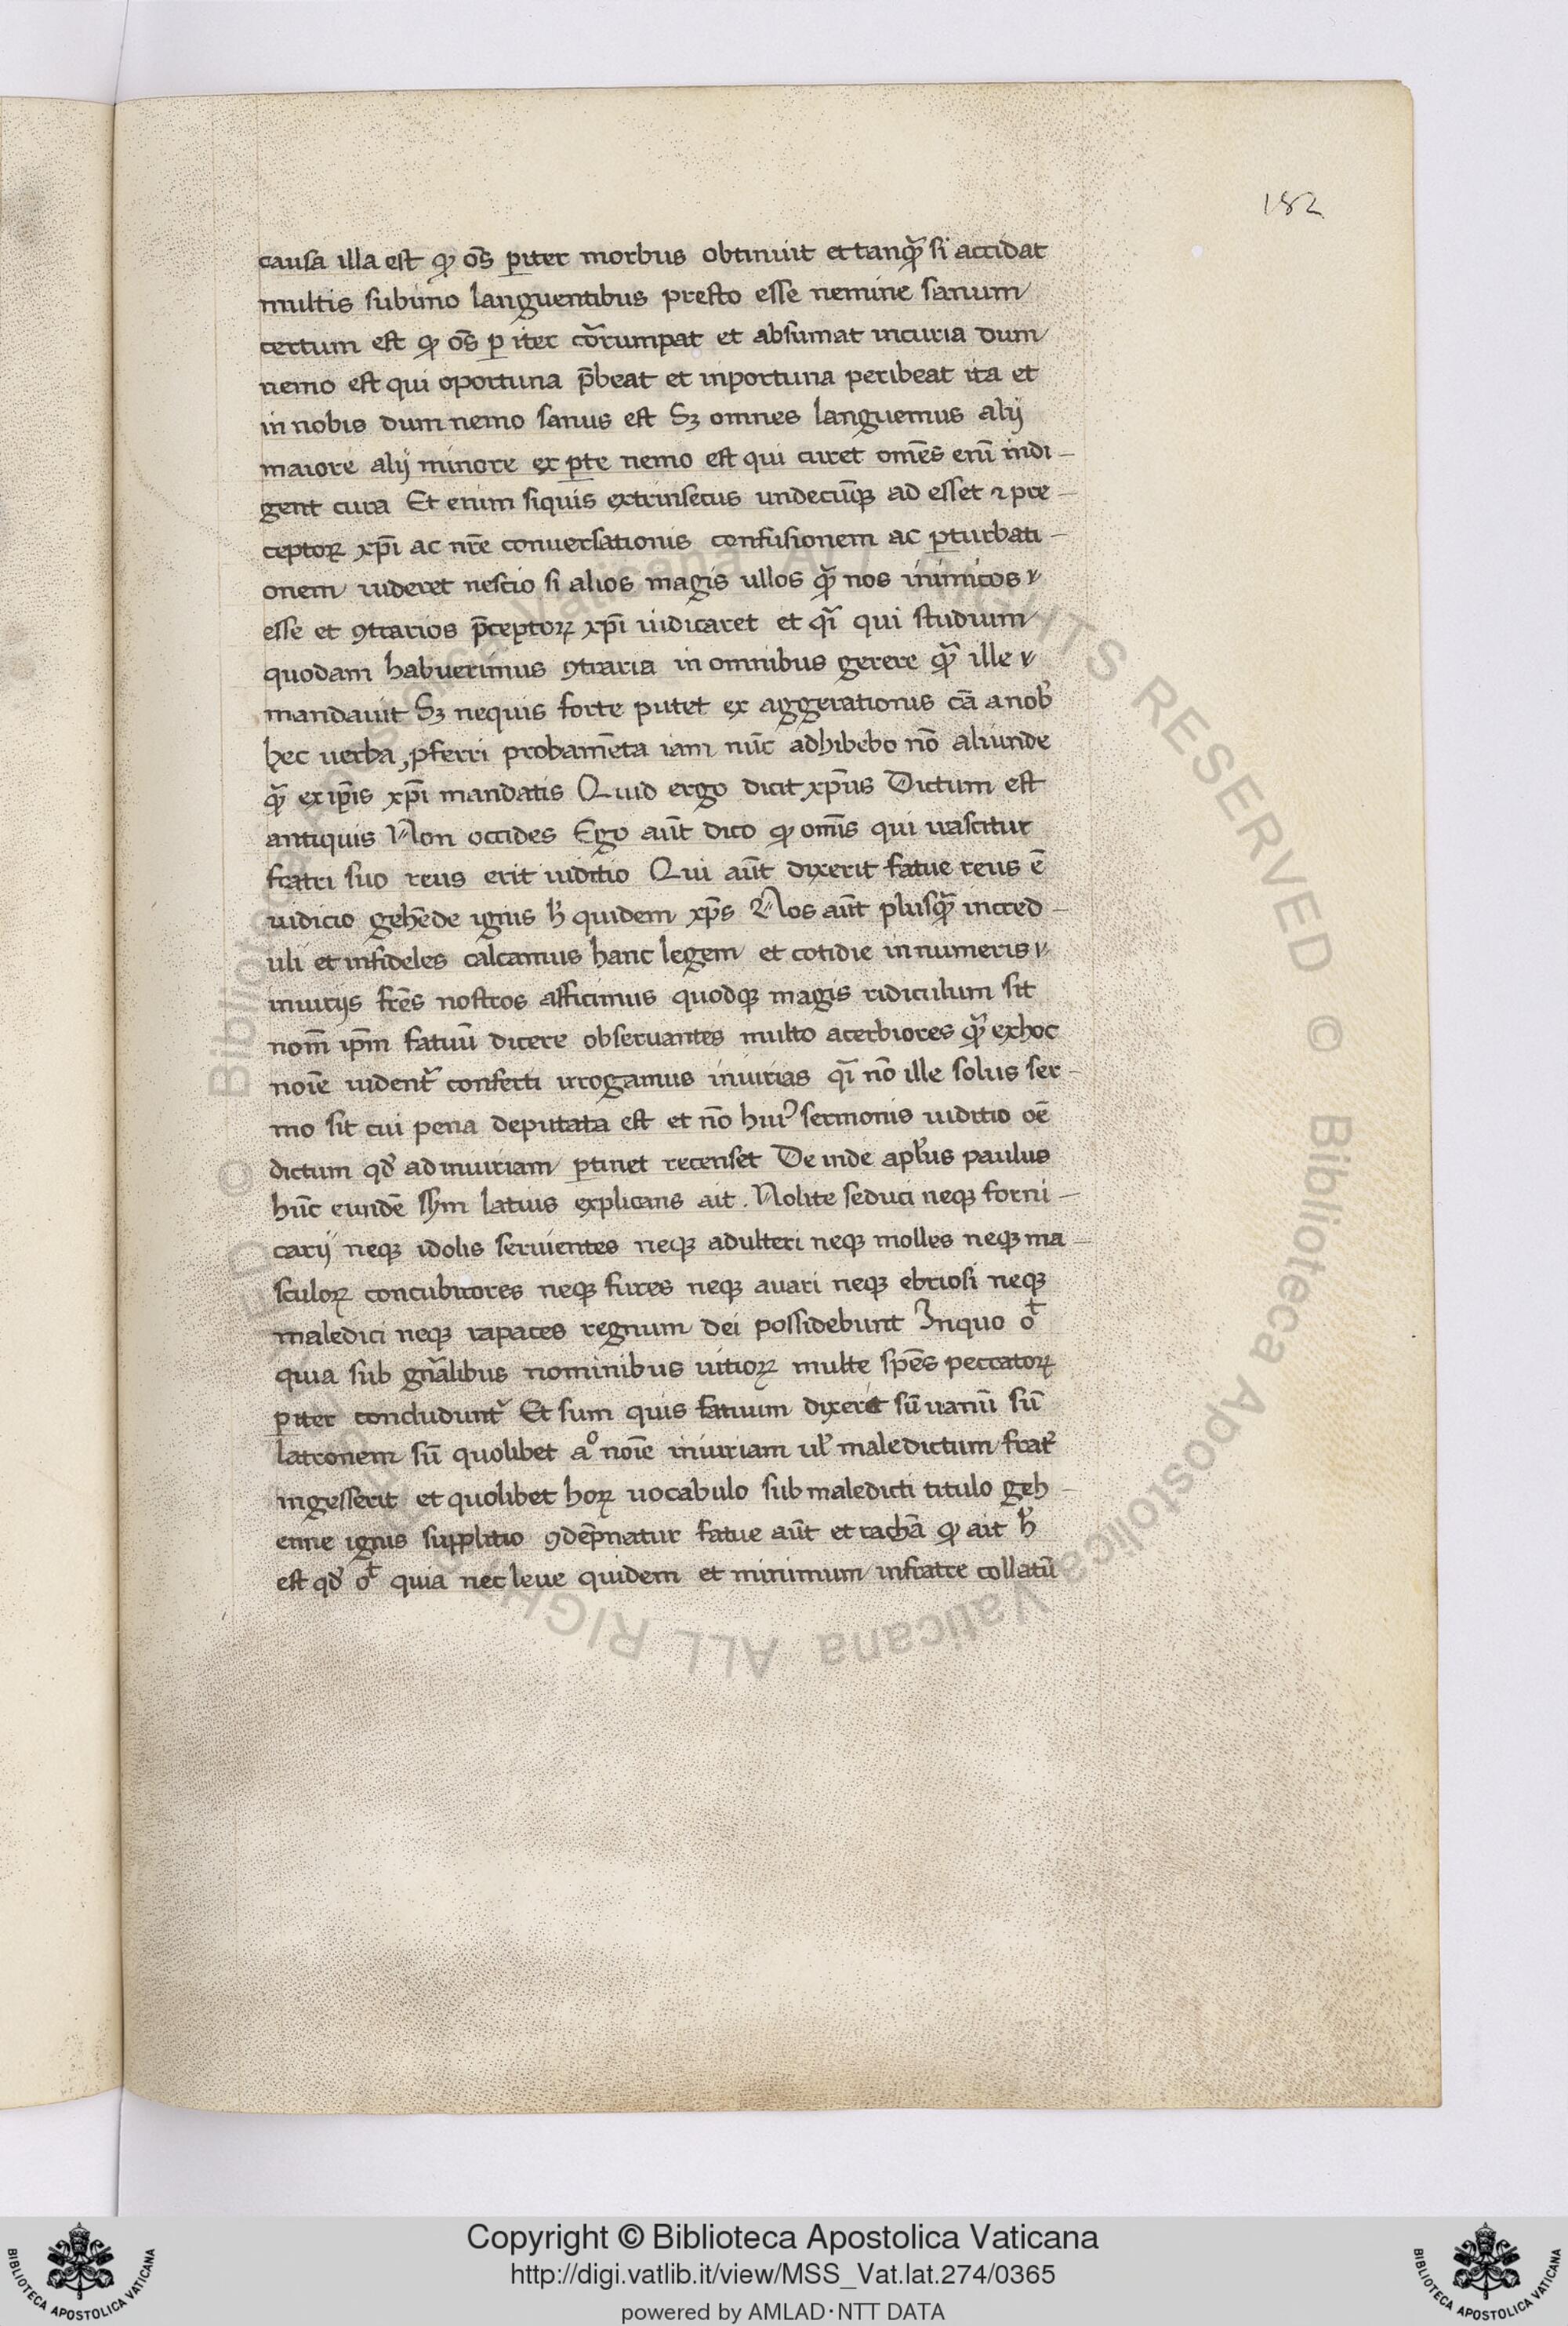 182
causa illa est ꝙ os̄ ꝑiter morbus obtinuit et tanqȝ̄ si accidat
multis subimo languentibus presto esse nemine sanum
certum est ꝙ os̄ ꝑ iter cor̄rumpat et absumat incuria dum
nemo est qui oportuna p̄beat et inportuna peribeat ita et
in nobis dum nemo sanus est Sꝫ omnes languemus alij
maiore alij minore ex ꝑte nemo est qui curet omēs enī indi-
gent cura Et enim siquis extrinsecus undecūqꝫ ad esset ⁊ pre-
ceptoꝝ xp̄i ac nr̄e conuersationis confusionem ac ꝑturbati-
onem uideret nescio si alios magis ullos qȝ̄ nos inimicos
esse et ꝯtrarios p̄ceptoꝝ xp̄i iudicaret et qī qui studium
quodam habuerimus ꝯtraria in omnibus gerere qȝ̄ ille
mandauit Sꝫ nequis forte putet ex aggerationis cā a nob̄
hec uerba ꝓferri probamēta iam nūc adhibebo nō aliunde
qȝ̄ ex ip̄is xp̄i mandatis Quid ergo dicit xp̄us Dictum est
antiquis Non occides Ego aūt dico ꝙ omīs qui irascitur
fratri suo reus erit iuditio Qui aūt dixerit fatue reus ē
iudicio gehēde ignis h̄ quidem xp̄s Nos aūt plusqȝ̄ incred-
uli et infideles calcamus hanc legem et cotidie in numeris
iniurijs fr̄es nostros afficimus quodqꝫ magis ridiculum sit
nom̄ ip̄m fatuū dicere obseruantes multo acerbiores qȝ̄ ex hoc
noīe uident᷑ conferti irrogamus iniurias qī nō ille solus ser-
mo sit cui pena deputata est et nō huiꝰ sermonis iuditio oē
dictum qđ ad iniuriam ꝑtinet recenset De inde apl̄us paulus
hūc eundē sēm latius explicans ait . Nolite seduci neqꝫ forni-
carij neqꝫ idolis seruientes neqꝫ adulteri neqꝫ molles neqꝫ ma-
sculoꝝ concubitores neqꝫ fures neqꝫ auari neqꝫ ebriosi neqꝫ
maledici neqꝫ rapaces regnum dei possidebunt In quo oᵗ
quia sub gn̄alibus nominibus uitioꝝ multe spēs peccatoꝝ
ꝑiter concludunt᷑ Et sum quis fatuum dixerit sū uanū sū
latronem sū quolibet aº noīe iniuriam ul̄ male dictum frat᷑
ingesserit et quolibet hoꝝ uocabulo sub maledicti titulo geh-
enne ignis supplitio ꝯdēpnatur fatue aūt et rachā ꝙ ait h̄
est qđ oᵗ quia nec leue quidem et minimum in fratre collatū
© Biblioteca Apostolica Vaticana ALL RIGHTS RESERVED © Biblioteca Apostolica Vaticana ALL RIGHTS RESERVED
Copyright © Biblioteca Apostolica Vaticana
http://digi.vatlib.it/view/MSS_Vat.lat.274/0365
powered by AMLAD·NTT DATA
BIBLIOTECA APOSTOLICA VATICANA
BIBLIOTECA APOSTOLICA VATICANA